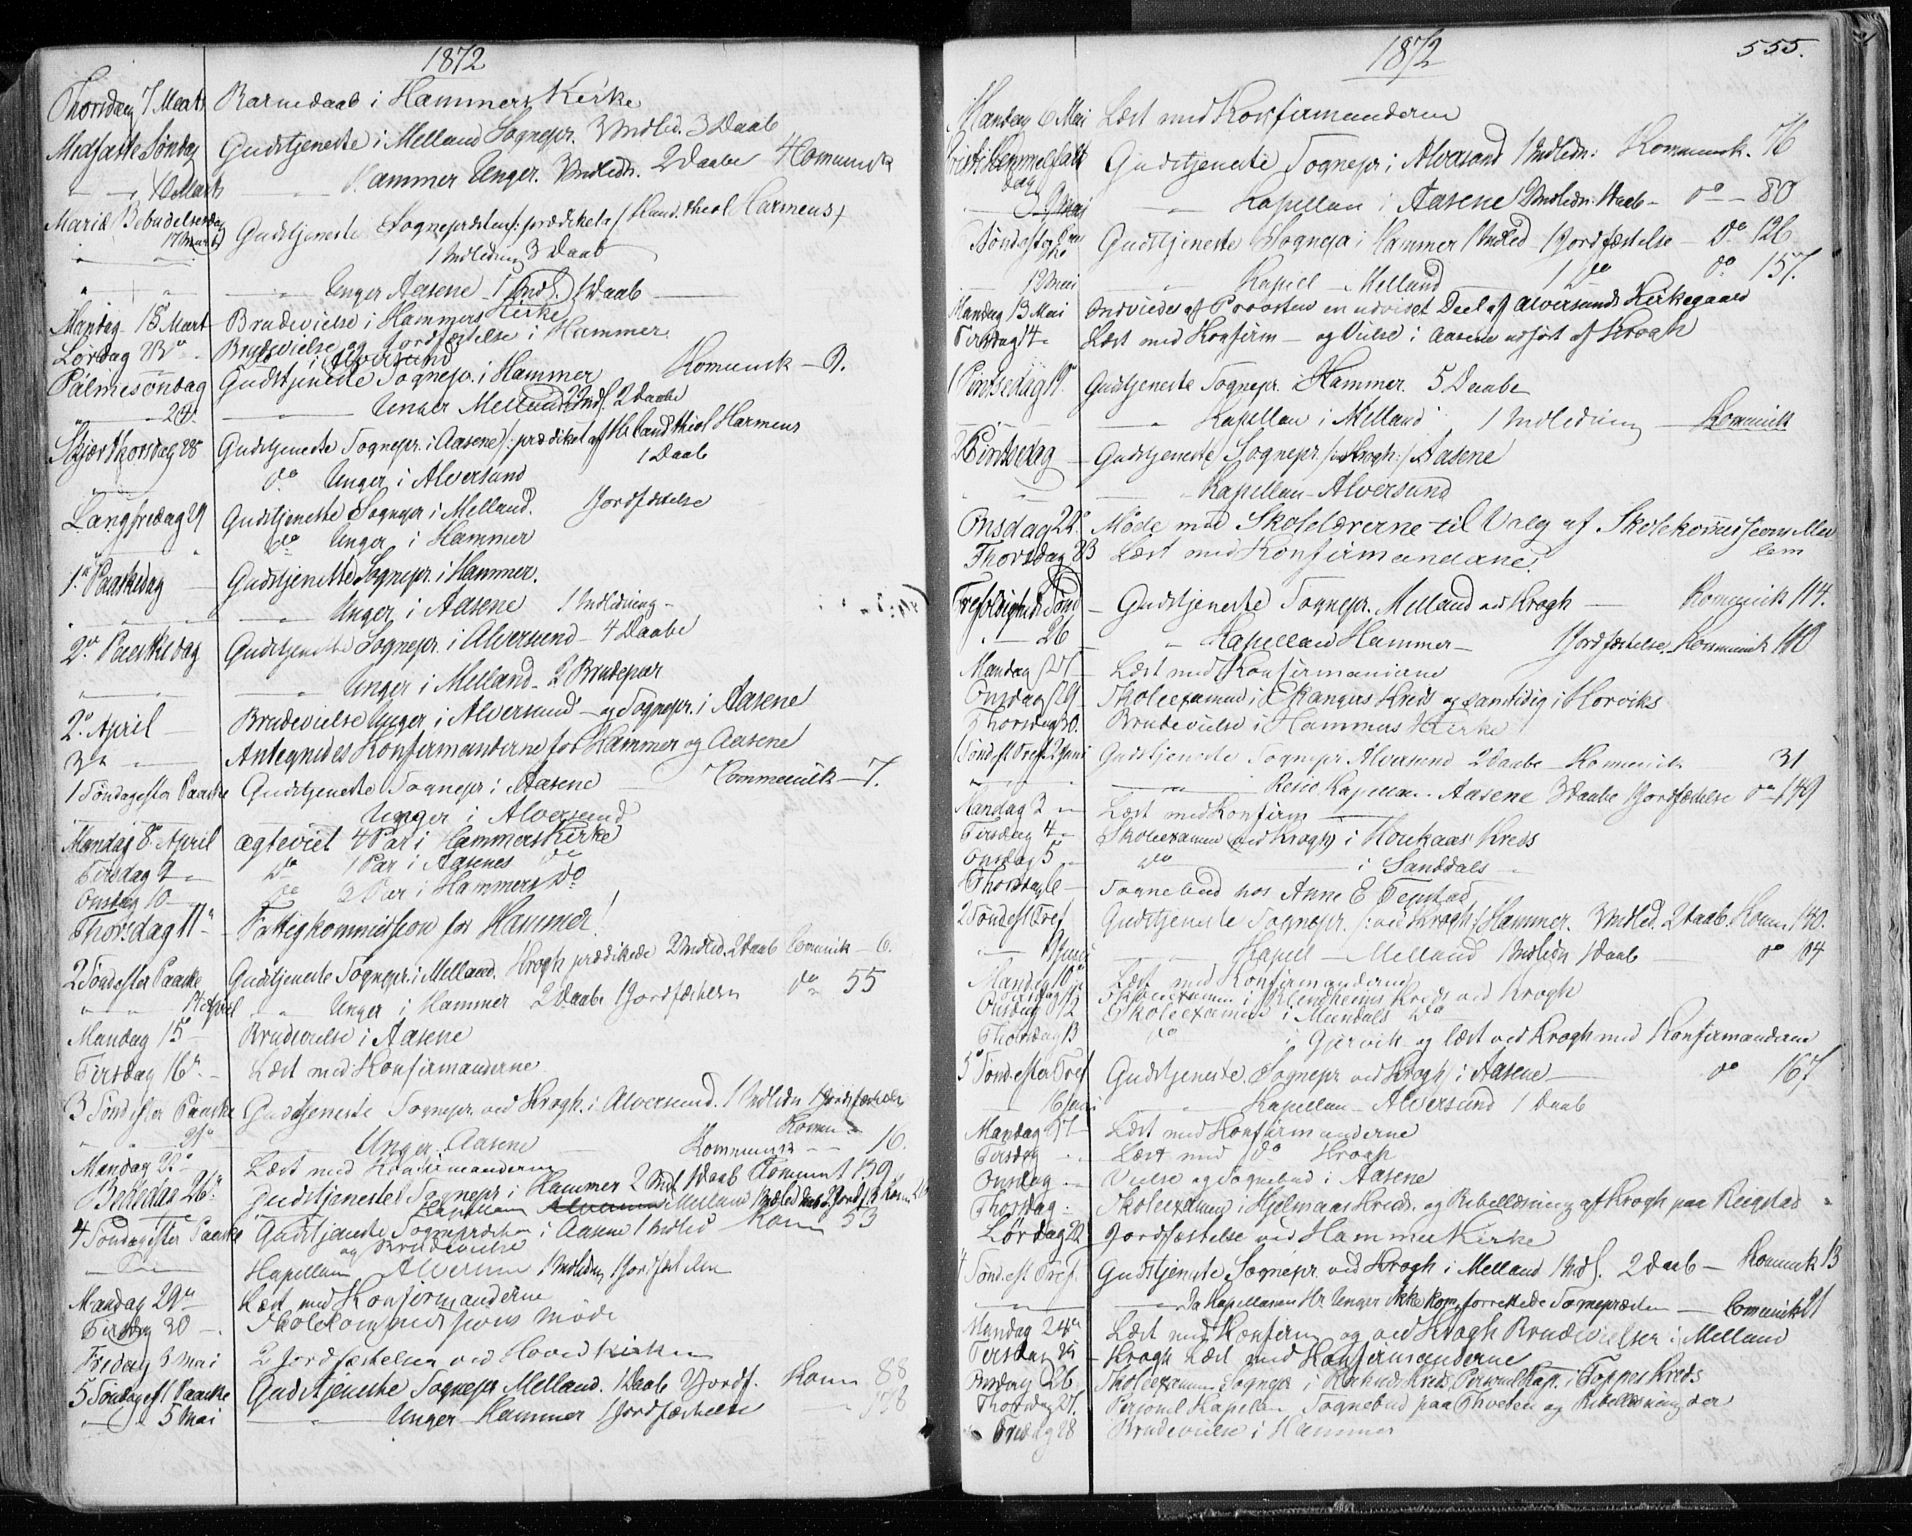 1872
Thorsdag 7 Marts Barnedaab i Hammers Kirke
Midfaste Søndag Gudstjeneste i Melland Sognepr. 3 Indled. 3 Daab
" " 10 Marts " Hammer Unger. 3 Indledn. 2 Daabe 4 Komunik
Mariæ Bebudelsesdag 17 Marts Gudstjeneste Sognepræsten /: prædikete /Kand. theol Harmens/
" 1 Indledning 3 Daab
" " " Unger Aasene 1 Indl. 1 Daab
Mandag 18 Mart Brudevielse i Hammers Kirke
Lørdag 23" Brudevielse og Jordfæstelse i Hammer
i Alversund
Palmesøndag Gudstjeneste Sognepr. i Hammer Komunik – 9.
" 24. " Unger Melland 2 Indl. 2 Daabe
Skjærthorsdag 28 Gudstjeneste Sognepr. i Aasene /: prædiket af Hr Cand theol Harmens
" do Unger i Alversund 1 Daab
Langfredag 29 Gudstjeneste Sognepr i Melland. 1 Jordfæstelse
" do Unger i Hammer
1" Paaskedag Gudstjeneste Sognepr. i Hammer.
" Unger i Aasene 1 Indledning
2" Paaskedag Gudstjeneste Sognepr. i Alversund – 4 Daabe
" Unger i Melland – 2 Brudepar
2" April Brudevielse Unger i Alversund – og Sognepr. i Aasene
3" " Antegnedes Konfirmanderne for Hammer og Aasene
1 Søndag efter Paaske Gudstjeneste Sognepr i Aasene Kommunik – 7.
Unger i Alversund
Mandag 8" April ægteviet 4 Par i Hammers Kirke
Tirsdag 9 " do 1 Par i Aasenes do
Onsdag 10 do 3 Par i Hammers do
Thorsdag 11" Fattigkommission for Hammer!
2 Sønd efter Paaske Gudstjeneste Sognepr. i Melland. Krogh prædikede 2 Indled. 2 Daab Comunik – 6.
" " 14 April " " Unger i Hammer 2 Daabe 1 Jordfæstelse do 55
Mandag 15 Brudevielse i Aasene
Tirsdag 16" Læst med Konfirmanderne
3 Sønd efter Paaske Gudstjeneste Sognepr. ved Krogh i Alversund. 1 Indledn 1 Jordfæstelse
Komm
" " 21" Unger Aasene Kommunik 16.
Mandag 22" Læst med Konfirmanderne
Bededag 26" Gudstjeneste Sognepr i Hammer 2 Indl. 1 Daab Komun 139
Kapellan Melland
4 Søndag efter Paaske Gudstjeneste Sognepræsten i Aasene 1 Indled Kom 53
og Brudevielse
Kapellan Alversun 1 Indledn 1 Jordfæstelse
Mandag 29" Læst med Konfirmanderne
Tirsdag 30 Skolekommissions Møde
Fredag 3 Mai 2 Jordfæstelser ved Hovedkirken
5 Søndag eft Paaske Gudstjeneste Sognepr Melland. 1 Daab 2 Jordf. Kom 88
" 5 Mai " Unger Hammer 1 Jordfæstelse 178
1872 555.
Mandag 6 Mai Læst med Konfirmanderne
Kristi Himmelfarts dag Gudstjeneste Sognepr. i Alversund 1 Indledn: Komunik. 76
9 Mai " Kapellan i Aasene 1 Indledn. 1 Daab – do – 80
Sønd efter Gudstjeneste Sognepr i Hammer 1 Indled 1 Jordfæstelse – do 126
12 Mai " Kapel – Melland 1 do do 157.
Mandag 13 Mai Indviedes af Provsten en udvidet Deel af Alversunds Kirkegaard
Tirsdag 14 " Læst med Konfirm – og Vielse i Aasene udført af Krogh
1 Pintsedag 19. Gudstjeneste Sognepr. i Hammer. 5 Daabe
" Kapellan i Melland 1 Indledning – Komunik
2 Pintsedag – Gudstjeneste Sognepr /: Krogh :/ Aasene
" Kapellan – Alversund
Onsdag 22" Møde med Skolelærerne til Valg af Skolekommissions Med
lem
Thorsdag 23 Læst med Konfirmandene
Trefoldigheds Sønd – Gudstjeneste Sognepr. Melland ved Krogh – Komunik 114.
" 26 " Kapellan Hammer – 1 Jordfæstelse, Komunik 110
Mandag 27 Læst med Konfirmanderne
Onsdag 29 Skoleexamen i Skanges Kreds og samtidig i Horviks
Thorsdag 30. Brudevielse i Hammers Kirke
1 Sønd eft Tref. 2 Juni Gudstjeneste Sognepr Alversund 2 Daabe Komunik 31
" " Resid Kapellan. Aasene 3 Daabe 1 Jordfæstelse do 149
Mandag 3 " Læst med Konfirm
Tirsdag 4 " Skoleexamen ved Krogh i Houkaas Kreds
Onsdag 5 " do i Sanddals "
Thorsdag 6 – Sognebud hos Anne E
2 Sønd eft Tref Gudstjeneste Sognepr. /: ved Krogh :/ Hammer. 3 Indled. 2 Daab. Komm 180.
" 9 Juni " Kapell – Melland 1 Indledn 1 Daab – do 94
Mandag 10" Læst med Konfirmanderne
Skoleexamen i Kreds ved Krogh
Onsdag 12 Skoleexamen i Mundals do
Thorsdag 13 do i Gjervik og læst ved Krogh med Konfirmandene
3" Sønd efter Tref Gudstjeneste Sognepr ved Krogh i Aasene – do 167
16 Juni " Kapellan – Alversund 1 Daab
Mandag 17 – Læst med Konfirmanderne
Tirsdag " Læst med do Krogh
Onsdag " Vielse og Sognebud i Aasene
Thorsdag " Skoleexamen i Hjelmaas Kreds. og Bibellæsning af Krogh paa Reigstad
Lørdag 22 Jordfæstelse ved Hammer Kirke
4 Sønd eft Tref. Gudstjeneste Sognepr. ved Krogh i Melland 1 Indl. 2 Daab – Komunik 13
" Da Kapellanen Hr. Unger ikke kom, forrettede Sognepræsten – Comunik 21
Mandag 24" Læst med Konfirm og ved Krogh Brudevielser i Melland
Tirsdag Krogh læst med Konfirmanderne
Onsdag 26 Skoleexamen Sognepr i Kreds, Personel Kap. i Toppes Kreds
Thorsdag 27. Personel Kapellan Sognebud paa og Bibellæsning der
Fredag 28 Brudevielse i Hammer